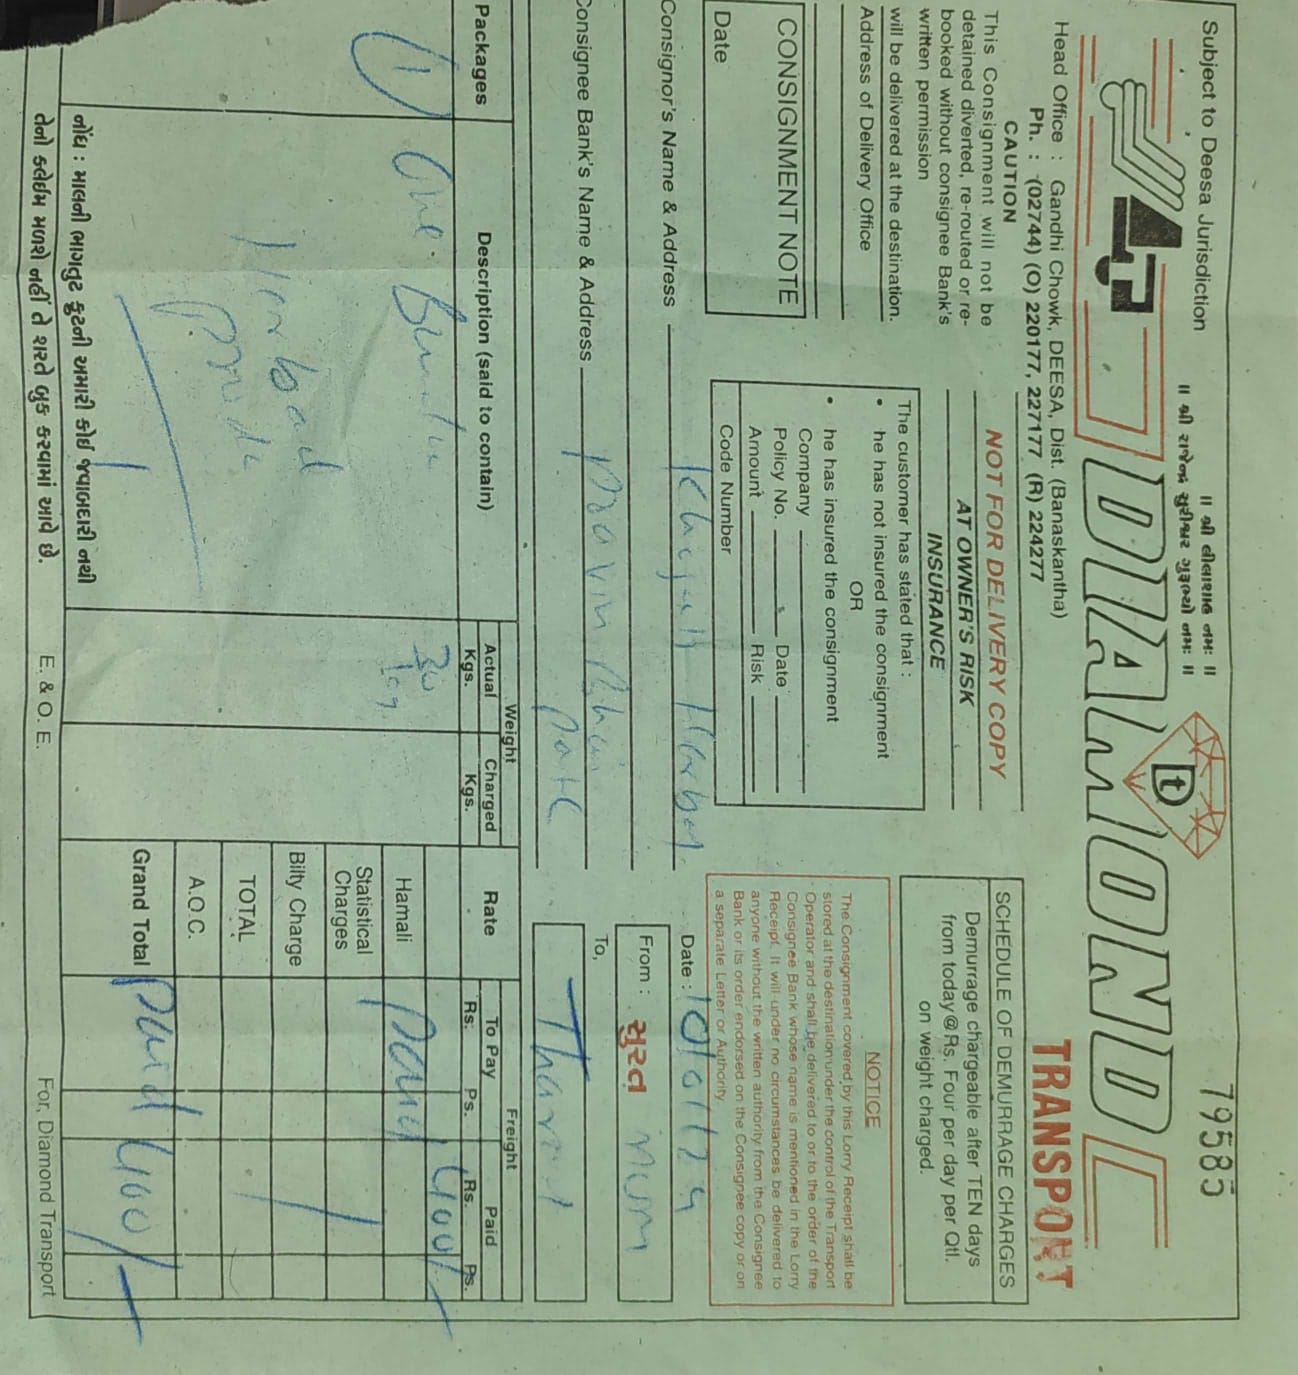 Subject to Deesa Jurisdiction
॥ શ્રી લીલાશાહ નમઃ ॥
79585
DIAMOND
t
TRANSPORT
Head Office : Gandhi Chowk, DEESA, Dist. (Banaskantha)
Ph. : (02744) (O) 220177, 227177 (R) 224277
CAUTION
This Consignment will not be
detained diverted, re-routed or re-
booked without consignee Bank's
written permission
will be delivered at the destination.
Address of Delivery Office
CONSIGNMENT NOTE
Date
NOT FOR DELIVERY COPY
AT OWNER'S RISK
INSURANCE
The customer has stated that :
• he has not insured the consignment
OR
• he has insured the consignment
Company
Policy No. Date
Amount Risk
Code Number
SCHEDULE OF DEMURRAGE CHARGES
Demurrage chargeable after TEN days
from today@Rs. Four per day per Qtl.
on weight charged.
NOTICE
The Consignment covered by this Lorry Receipt shall be
stored at the destination under the control of the Transport
Operator and shall be delivered to or to the order of the
Consignee Bank whose name is mentioned in the Lorry
Receipt. It will under no circumstances be delivered to
anyone without the written authority from the Consignee
Bank or its order endorsed on the Consignee copy or on
a separate Letter or Authority
Consignor's Name & Address
Date :
Consignee Bank's Name & Address Pravin Bhai
From : સુરત
To,
Packages
Description (said to contain)
Weight
Actual Kgs.
Charged Kgs.
Rate
Freight
To Pay
Paid
Rs. Ps. Rs. Ps.
1 One
30 kg
400/-
Hamali Paid
Statistical Charges
Bilty Charge
TOTAL
A.O.C.
Grand Total Paid 400/-
નોંધ : માલની ભાગતુટ ફુટની અમારી કોઈ જવાબદારી નથી
તેનો કલેઈમ મળશે નહીં તે શરતે બુક કરવામાં આવે છે.
E. & O. E.
For, Diamond Transport